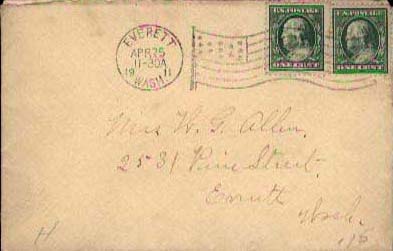 EVERETT
APR 25
11-30A
19 11
WASH.
U.S. POSTAGE
ONE CENT
U.S. POSTAGE
ONE CENT
Mrs W. G. Allen.
2531 Pine Street.
Everett
Wash.